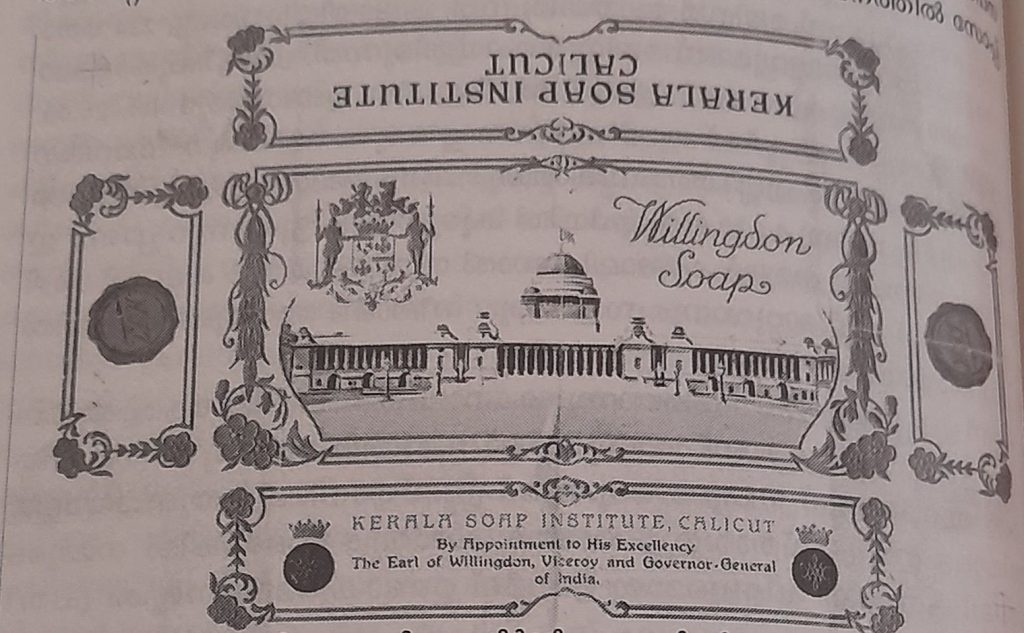 KERALA SOAP INSTITUTE
CALICUT
Willingdon
Soap
KERALA SOAP INSTITUTE, CALICUT
By Appointment to His Excellency
The Earl of Willingdon, Viceroy and Governor-General
of India.